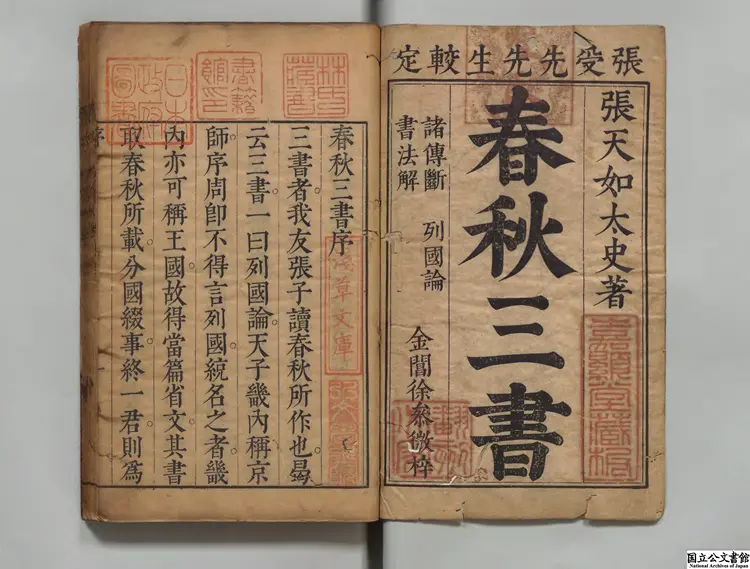 張受先先生較定
張天如太史著
春秋三書
諸傳斷 列國論
書法解
金閶徐參微梓
春秋三書序
三書者我友張子讀春秋所作也曷
云三書一曰列國論天子畿內稱京
師序周卽不得言列國統名之者畿
內亦可稱王國故得當篇省文其書
取春秋所載分國綴事終一君則爲
序
林氏藏書
書籍館印
日本政府圖書
淺草文庫
国立公文書館
National Archives of Japan